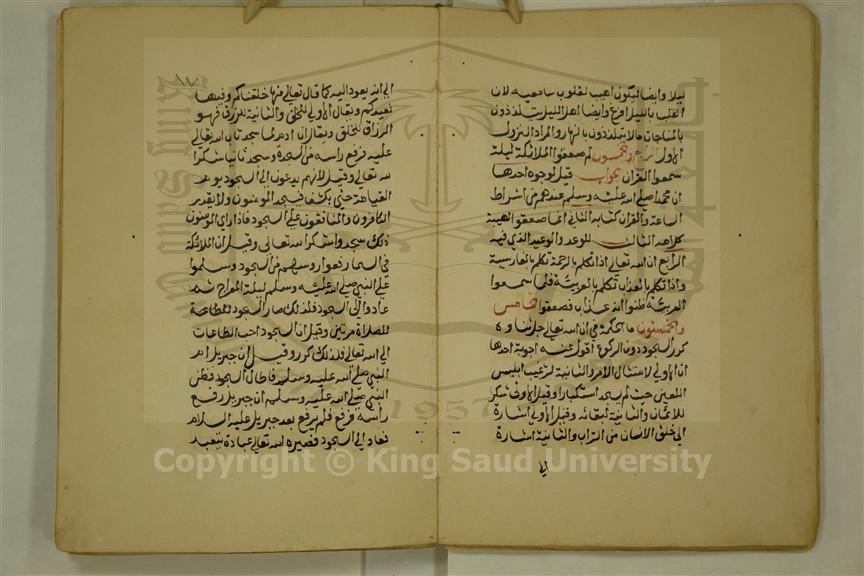 ليلا وايضا ليكون اهيب لقلوب سامعيه لان
القلب بالليل افرغ وايضا اهل الليل يتلذذون
بالمناجات مالا يتلذذون بالنهار والمراد النزول
الاول الرابع والخمسون لم صعقوا الملائكة ليلة
سمعوا القران الجواب قيل لوجوه احدها
ان محمدا صلى الله عليه وسلم عندهم من اشراط
الساعة والقران كتابه الثاني انما صعقوا لهيبة
كلامه الثالث للوعد والوعيد الذي فيه
الرابع ان الله تعالى اذا تكلم بالرحمة تكلم بالفارسية
واذا تكلم بالعذاب تكلم بالعربية فلما سمعوا
العربية ظنوا انه عذاب فصعقوا الخامس
والخمسون ما الحكمة في ان الله تعالى جل ثناؤه
كرر السجود دون الركوع اقول عنه اجوبة احدها
ان الاولى لامتثال الامر والثانية لترغيب ابليس
اللعين حيث لم يسجد استكبارا وقيل الاولى شكر
للايمان والثانية لبقائه وقيل الاولى اشارة
الى خلق الانسان من التراب والثانية اشارة
الى
١٧
الى انه يعود اليه كما قال تعالى منها خلقناكم وفيها
نعيدكم ويقال الاولى للخلق والثانية للرزق فهو
الرزاق للخلق ويقال ان ادم لما سجد تاب الله تعالى
عليه فرفع راسه من السجدة وسجد ثانيا شكرا
لله تعالى وقيل لانهم يدعون الى السجود يوم
القيامة حين يكشف فيسجد المومنون ولا يقدر
الكافرون والمنافقون على السجود فاذا راى المومنون
ذلك سجدوا شكرا لله تعالى وقيل ان الملائكة
في السما رفعوا روسهم من السجود وسلموا
على النبي صلى الله عليه وسلم ليلة المعراج ثم
عادوا الى السجود فلذلك صار السجود
للصلاة مرتين وقيل ان السجود احب الطاعات
الى الله تعالى فلذلك كرر وقيل ان جبريل ام
النبي صلى الله عليه وسلم فاطال السجود فظن
النبي صلى الله عليه وسلم ان جبريل رفع
راسه فرفع فلم يرفع بعد جبريل عليه السلام
فعاد الى السجود فصيره الله تعالى عبادة يتعبد
1957
Copyright © King Saud University